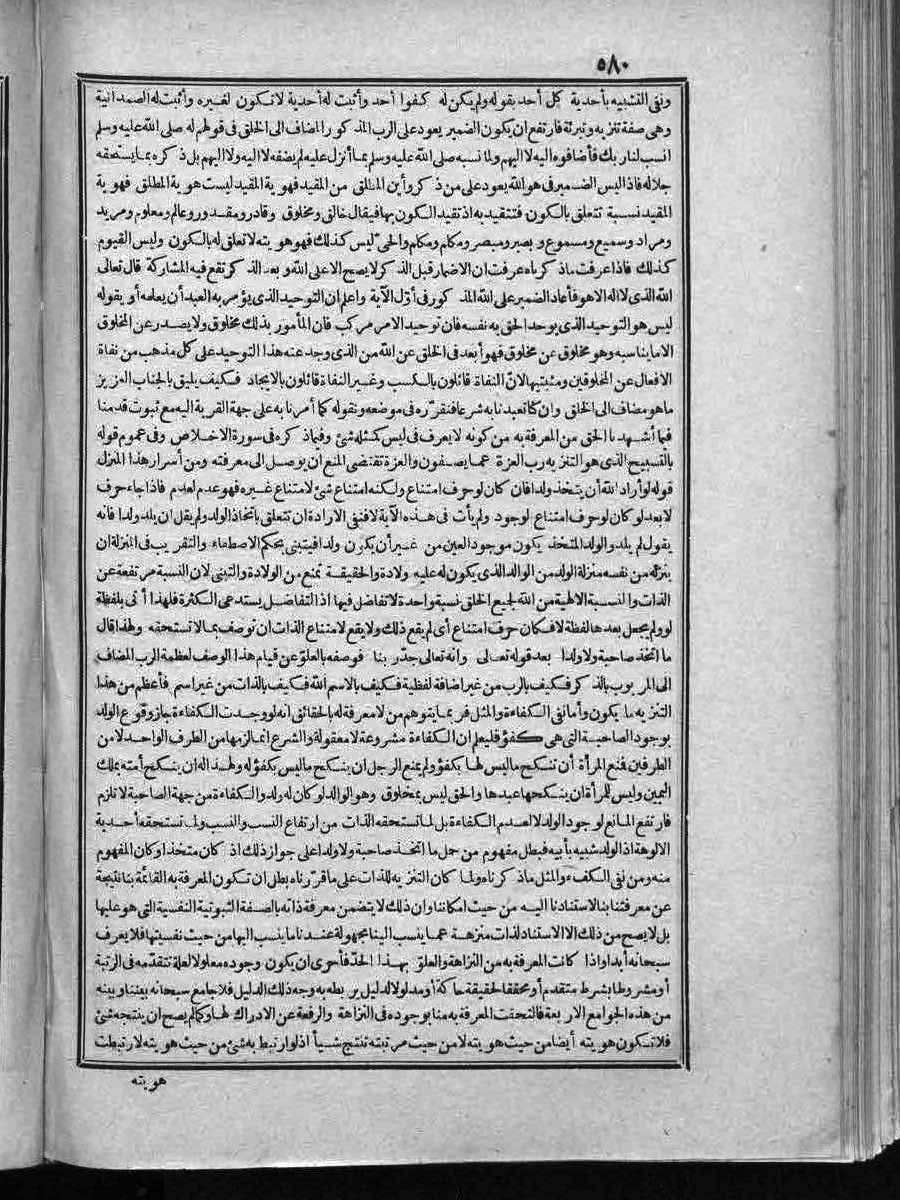 ٥٨٠
ونفى التشبيه بأحدية كل أحد بقوله ولم يكن له كفوا أحد وأثبت له أحدية لا تكون لغيره وأثبت له الصمدانية
وهى صفة تنزيه وتبرئة فارتفع ان يكون الضمير يعود على الرب المذكور المضاف الى الخلق فى قولهم له صلى الله عليه وسلم
انسب لنا ربك فأضافوه اليه لا اليهم ولما نسبه صلى الله عليه وسلم بما أنزل عليه لم يضفه لا اليه ولا اليهم بل ذكره بما يستحقه
جلاله فاذا ليس الضمير فى هو الله يعود على من ذكر وأين المطلق من المقيد فهوية المقيد ليست هوية المطلق فهوية
المقيد نسبة تتعلق بالكون فتتقيد به اذ تقيد الكون بها فيقال خالق ومخلوق وقادر ومقدور وعالم ومعلوم ومريد
ومراد وسميع ومسموع وبصير ومبصر ومكلم ومكلم والحىّ ليس كذلك فهو هويته لا تعلق له بالكون وليس القيوم
كذلك فاذا عرفت ماذكرناه عرفت ان الاضمار قبل الذكر لا يصح الا على الله وبعد الذكر تقع فيه المشاركة قال تعالى
الله الذى لا اله الا هو فأعاد الضمير على الله المذكور فى أوّل الآية واعلم ان التوحيد الذى يؤمر به العبد أن يعلمه أو يقوله
ليس هو التوحيد الذى يوحد الحق به نفسه فان توحيد الامر مركب فان المأمور بذلك مخلوق ولا يصدر عن المخلوق
الا ما يناسبه وهو مخلوق عن مخلوق فهو أبعد فى الخلق عن الله من الذى وجد عنه هذا التوحيد على كل مذهب من نفاة
الافعال عن المخلوقين ومثبتيها لانّ النفاة قائلون بالكسب وغير النفاة قائلون بالايجاد فكيف يليق بالجناب العزيز
ما هو مضاف الى الخلق وان كنا تعبدنا به شرعا فنقرّره فى موضعه ونقوله كما أمرنا به على جهة القربة اليه مع ثبوت قدمنا
فيما أشهدنا الحق من المعرفة به من كونه لا يعرف فى ليس كمثله شئ وفيما ذكره فى سورة الاخلاص وفى عموم قوله
بالتسبيح الذى هو التنزيه رب العزة عما يصفون والعزة تقتضى المنع ان يوصل الى معرفته ومن أسرار هذا المنزل
قوله لو أراد الله أن يتخذ ولدا فان كان لو حرف امتناع ولكنه امتناع شئ لامتناع غيره فهو عدم لعدم فاذا جاء حرف
لا بعد لو كان لو حرف امتناع لوجود ولم يأت فى هذه الآية لا فنفى الارادة ان تتعلق باتخاذ الولد ولم يقل ان يلد ولدا فانه
يقول لم يلد والولد المتخذ يكون موجود العين من غير أن يكون ولدا فيتبنى بحكم الاصطفاء والتقريب فى المنزلة ان
ينزله من نفسه منزلة الولد من الوالد الذى يكون له عليه ولادة والحقيقة تمنع من الولادة والتبنى لان النسبة مرتفعة عن
الذات والنسبة الالهية من الله لجميع الخلق نسبة واحدة لا تفاضل فيها اذ التفاضل يستدعى الكثرة فلهذا أتى بلفظة
لو ولم يجعل بعدها لفظة لا فكان حرف امتناع أى لم يقع ذلك ولا يقع لامتناع الذات ان توصف بما لا تستحقه ولهذا قال
ما اتخذ صاحبة ولا ولدا بعد قوله تعالى وانه تعالى جدّ ربنا فوصفه بالعلوّ عن قيام هذا الوصف لعظمة الرب المضاف
الى المربوب بالذكر فكيف بالرب من غير اضافة لفظية فكيف بالاسم الله فكيف بالذات من غير اسم فأعظم من هذا
التنزيه ما يكون وأما نفى الكفاءة والمثل فربما يتوهم من لا معرفة له بالحقائق انه لو وجدت الكفاءة جاز وقوع الولد
بوجود الصاحبة التى هى كفؤ فليعلم ان الكفاءة مشروعة لا معقولة والشرع انما لزمها من الطرف الواحد لا من
الطرفين فمنع المرأة أن تنكح ما ليس لها بكفؤ ولم يمنع الرجل ان ينكح ما ليس بكفؤ له ولهذا له ان ينكح أمته بملك
اليمين وليس للمرأة ان ينكحها عبدها والحق ليس بمخلوق وهو الوالد لو كان له ولد والكفاءة من جهة الصاحبة لا تلزم
فارتفع المانع لوجود الولد لا لعدم الكفاءة بل لما تستحقه الذات من ارتفاع النسب والنسب ولما تستحقه أحدية
الالوهة اذ الولد شبيه بأبيه فبطل مفهوم من حمل ما اتخذ صاحبة ولا ولدا على جواز ذلك اذ كان متخذا وكان المفهوم
منه ومن نفى الكفء والمثل ماذكرناه ولما كان التنزيه للذات على ما قرّرناه بطل ان تكون المعرفة به القائمة بنا نتيجة
عن معرفتنا بنا لاستنادنا اليه من حيث امكاننا وان ذلك لا يتضمن معرفة ذاته بالصفة الثبوتية النفسية التى هو عليها
بل لا يصح من ذلك الا الاستناد لذات منزهة عما ينسب الينا مجهولة عندنا ما ينسب اليها من حيث نفسيتها فلا يعرف
سبحانه أبدا واذا كانت المعرفة به من النزاهة والعلوّ بهذا الحدّ فأحرى ان يكون وجوده معلولا لعلة تتقدّمه فى الرتبة
أو مشروطا بشرط متقدم أو محققا لحقيقة حاكمة أو مدلولا لدليل يربطه به وجه ذلك الدليل فلا جامع سبحانه بيننا وبينه
من هذه الجوامع الاربعة فالتحقت المعرفة به منا بوجوده فى النزاهة والرفعة عن الادراك لها وكما لم يصح ان ينتجه شئ
فلا تكون هويته أيضا من حيث هويته لا من حيث مرتبته تنتج شيأ اذ لو ارتبط به شئ من حيث هويته لارتبطت
هويته